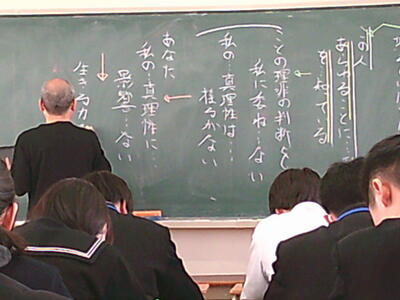 この人
あらゆることに…
を…ねている
ことの理非の判断を
私に委ね…ない
私の…真理性は…
揺るがない
あなた
私の…真理性に…
影響…ない
生きる力